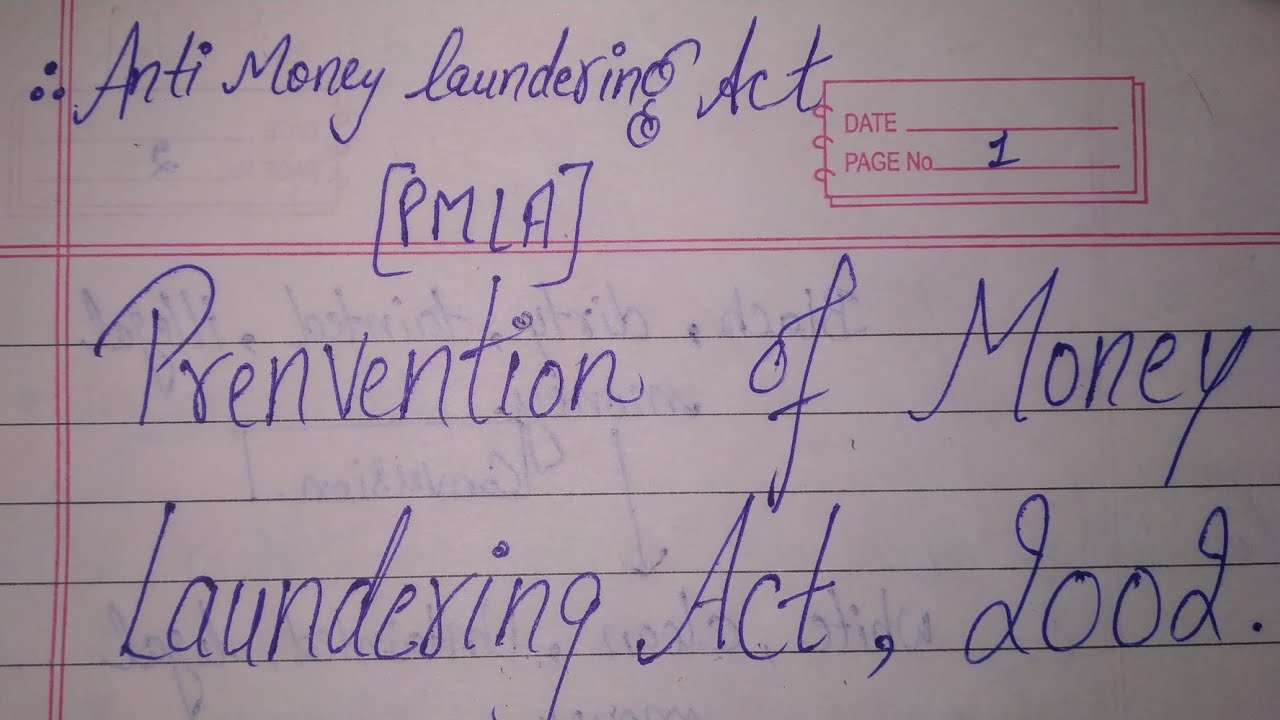 ∴ Anti Money laundering Act
DATE
PAGE No. 1
[PMLA]
Prenvention of Money
Laundering Act, 2002.